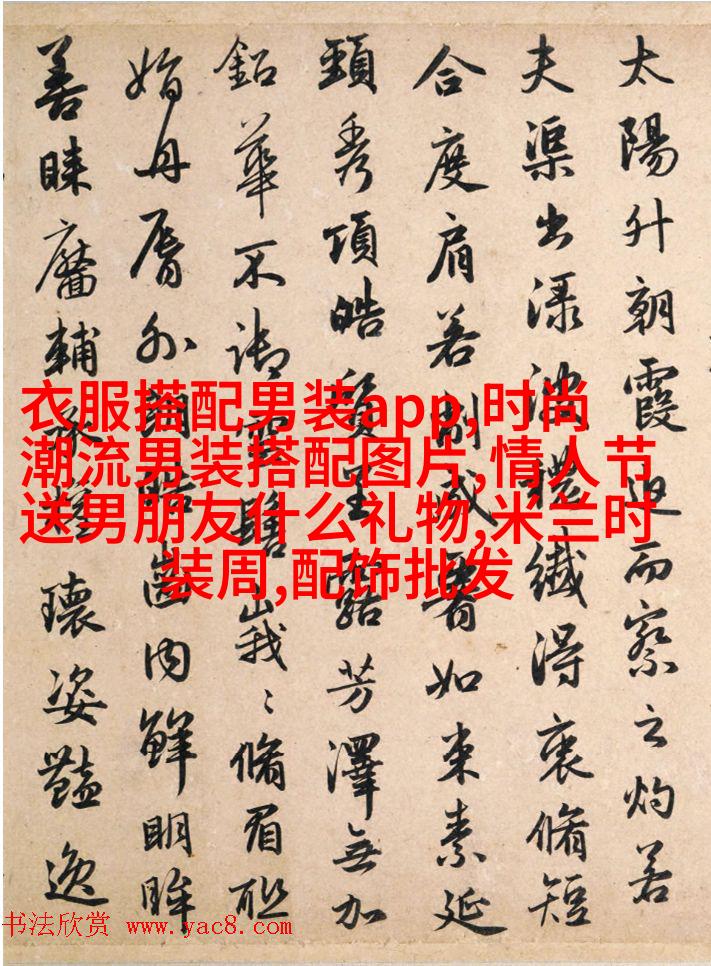 太陽升朝霞迫而察之灼若
夫渠出渌波穠纖得衷脩短
合度肩若削成腰如束素延
頸秀項皓質呈露芳澤無加
鉛華不御雲髻峩〻脩眉聯
娟丹脣外朗皓齒内鮮明眸
善睞靨輔承權瓌姿豔逸
衣服搭配男装app,时尚
潮流男装搭配图片,情人节
送男朋友什么礼物,米兰时
装周,配饰批发
书法欣赏 www.yac8.com